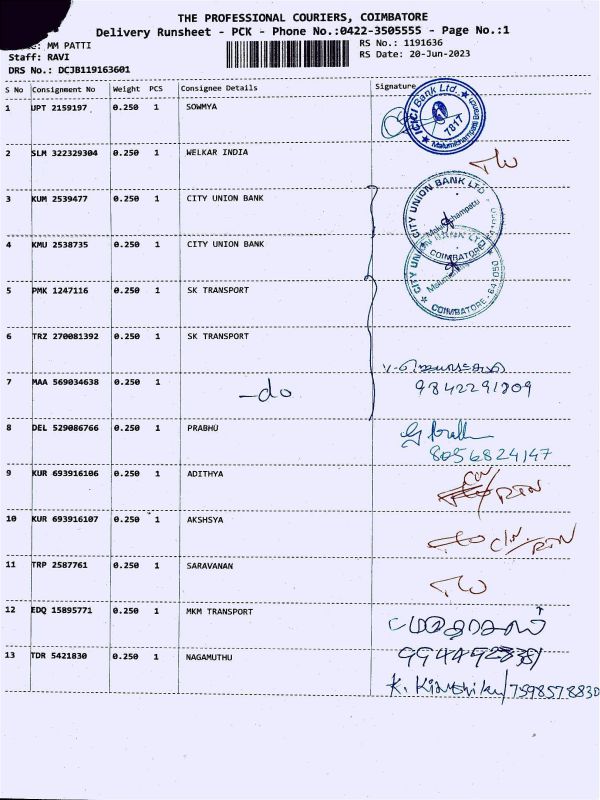 THE PROFESSIONAL COURIERS, COIMBATORE
Delivery Runsheet - PCK - Phone No.:0422-3505555 - Page No.:1
MM PATTI
RS No.: 1191636
Staff: RAVI
RS Date: 20-Jun-2023
DRS No.: DCJB119163601
S No Consignment No Weight PCS Consignee Details Signature
1 JPT 2159197 0.250 1 SOWMYA
ICICI Bank Ltd. 7817
2 SLM 322329304 0.250 1 WELKAR INDIA
3 KUM 2539477 0.250 1 CITY UNION BANK
CITY UNION BANK LTD COIMBATORE
4 KMU 2538735 0.250 1 CITY UNION BANK
CITY UNION BANK LTD COIMBATORE - 641050
5 PMK 1247116 0.250 1 SK TRANSPORT
6 TRZ 270081392 0.250 1 SK TRANSPORT
7 MAA 569034638 0.250 1 -do 9842291809
8 DEL 529086766 0.250 1 PRABHU
8056824147
9 KUR 693916106 0.250 1 ADITHYA RTN
10 KUR 693916107 0.250 1 AKSHSYA RTN
11 TRP 2587761 0.250 1 SARAVANAN
12 EDQ 15895771 0.250 1 MKM TRANSPORT
13 TDR 5421830 0.250 1 NAGAMUTHU
7598578830